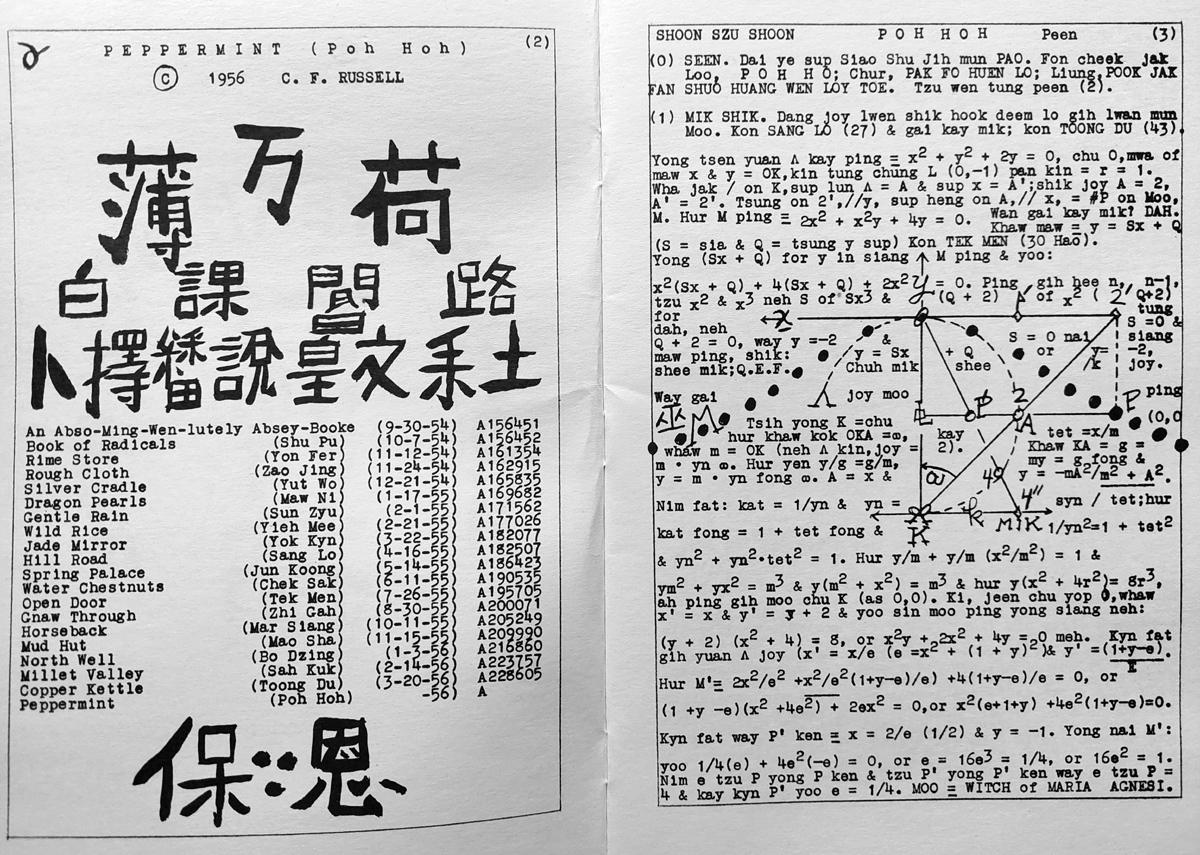 PEPPERMINT (Poh Hoh) (2)
© 1956 C. F. RUSSELL
万
薄 荷
白 課 閶 路
卜 擇 播 說 皇 文 釆 土
An Abso-Ming-Wen-lutely Absey-Booke (9-30-54) A156451
Book of Radicals (Shu Pu) (10-7-54) A156452
Rime Store (Yon Fer) (11-12-54) A161354
Rough Cloth (Zao Jing) (11-24-54) A162915
Silver Cradle (Yut Wo) (12-21-54) A165835
Dragon Pearls (Maw Ni) (1-17-55) A169682
Gentle Rain (Sun Zyu) (2-1-55) A171562
Wild Rice (Yieh Mee) (2-21-55) A177026
Jade Mirror (Yok Kyn) (3-22-55) A182077
Hill Road (Sang Lo) (4-16-55) A182507
Spring Palace (Jun Koong) (5-14-55) A186423
Water Chestnuts (Chek Sak) (6-11-55) A190535
Open Door (Tek Men) (7-26-55) A195705
Gnaw Through (Zhi Gah) (8-30-55) A200071
Horseback (Mar Siang) (10-11-55) A205249
Mud Hut (Mao Sha) (11-15-55) A209990
North Well (Bo Dzing) (1-3-56) A216860
Millet Valley (Sah Kuk) (2-14-56) A223757
Copper Kettle (Toong Du) (3-20-56) A228605
Peppermint (Poh Hoh) -56) A
保 恩
SHOON SZU SHOON P O H H O H Peen (3)
(0) SEEN. Dai ye sup Siao Shu Jih mun PAO. Fon cheek jak
Loo, P O H H O; Chur, PAK FO HUEN LO; Liung, POOK JAK
FAN SHUO HUANG WEN LOY TOE. Tzu wen tung peen (2).
(1) MIK SHIK. Dang joy lwen shik hook deem lo gih lwan mun
Moo. Kon SANG LO (27) & gai kay mik; kon TOONG DU (43).
Yong tsen yuan Λ kay ping ≡ x² + y² + 2y = 0, chu O,mwa of
maw x & y = OK,kin tung chung L (0,-1) pan kin = r = 1.
Wha jak / on K,sup lun Λ = A & sup x = A';shik joy A = 2,
A' = 2'. Tsung on 2',//y, sup heng on A,// x, = #P on Moo,
M. Hur M ping ≡ 2x² + x²y + 4y = 0. Wan gai kay mik? DAH.
Khaw maw = y = Sx + Q
(S = sia & Q = tsung y sup) Kon TEK MEN (30 Hao).
Yong (Sx + Q) for y in siang M ping & yoo:
x²(Sx + Q) + 4(Sx + Q) + 2x² = 0. Ping gih hee n, n-1,
tzu x² & x³ neh S of Sx³ & (Q + 2) of x² ( Q+2)
for tung
dah, neh S = 0 nai S =0 &
Q + 2 = 0, way y =-2 & or y= siang
maw ping, shik: y = Sx + Q /k -2,
shee mik;Q.E.F. Chuh mik shee joy.
Way gai joy moo ping
巫 M Tsih yong K =chu (0,0
hur khaw kok OKA =∞, kay tet =x/m
whaw m = OK (neh Λ kin,joy = 2). Khaw KA = g =
m · yn ∞. Hur yen y/g =g/m, my = g fong &
y = m · yn fong ∞. A = x & y = -mA²/m² + A².
Nim fat: kat = 1/yn & yn = syn / tet;hur
kat fong = 1 + tet fong & 1/yn²=1 + tet²
& yn² + yn²·tet² = 1. Hur y/m + y/m (x²/m²) = 1 &
ym² + yx² = m³ & y(m² + x²) = m³ & hur y(x² + 4r²)= 8r³,
ah ping gih moo chu K (as 0,0). Ki, jeen chu yop O,whaw
x' = x & y' = y + 2 & yoo sin moo ping yong siang neh:
(y + 2) (x² + 4) = 8, or x²y + 2x² + 4y = 0 meh. Kyn fat
gih yuan Λ joy (x' = x/e (e =x² + (1 + y)²)& y' =(1+y-e).
E
Hur M'≡ 2x²/e² +x²/e²(1+y-e)/e) +4(1+y-e)/e = 0, or
(1 +y -e)(x² +4e²) + 2ex² = 0,or x²(e+1+y) +4e²(1+y-e)=0.
Kyn fat way P' ken ≡ x = 2/e (1/2) & y = -1. Yong nai M':
yoo 1/4(e) + 4e²(-e) = 0, or e = 16e³ = 1/4, or 16e² = 1.
Nim e tzu P yong P ken & tzu P' yong P' ken way e tzu P =
4 & kay kyn P' yoo e = 1/4. MOO ≡ WITCH of MARIA AGNESI.